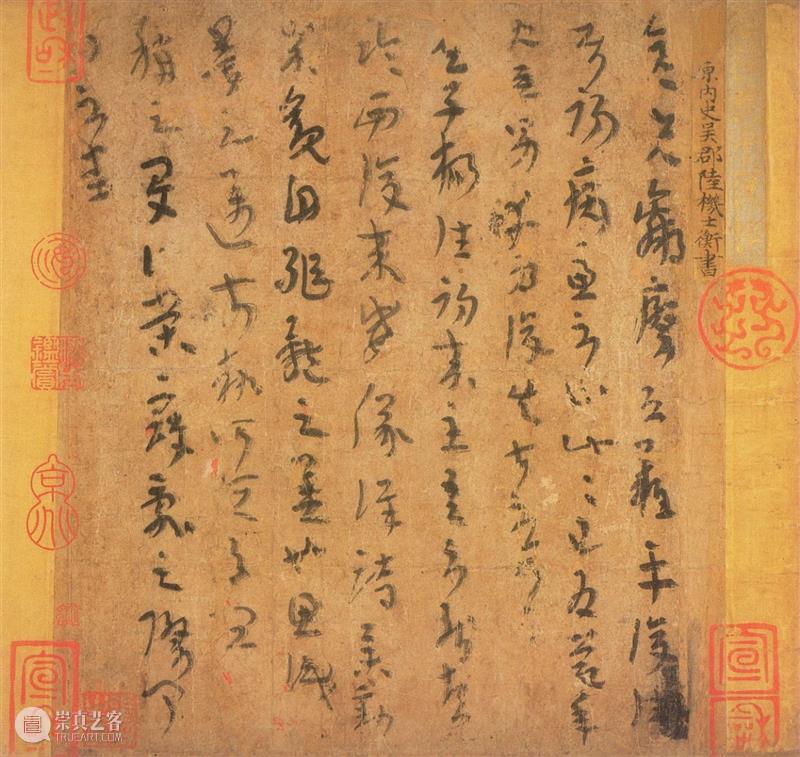 内史吴郡陸機士衡書
彦先羸瘵恐難平復往屬
初病慮不止此此已為慶承
使唯男幸為復失前憂耳
吴子楊往初来主吾不能盡
臨西復来威儀詳跱舉動
成觀自軀體之美也思識
量之邁前執所恒有宜
稱之夏伯榮寇亂之際聞
問不悉
政和
宣和
崇真艺客
TRUEART.COM